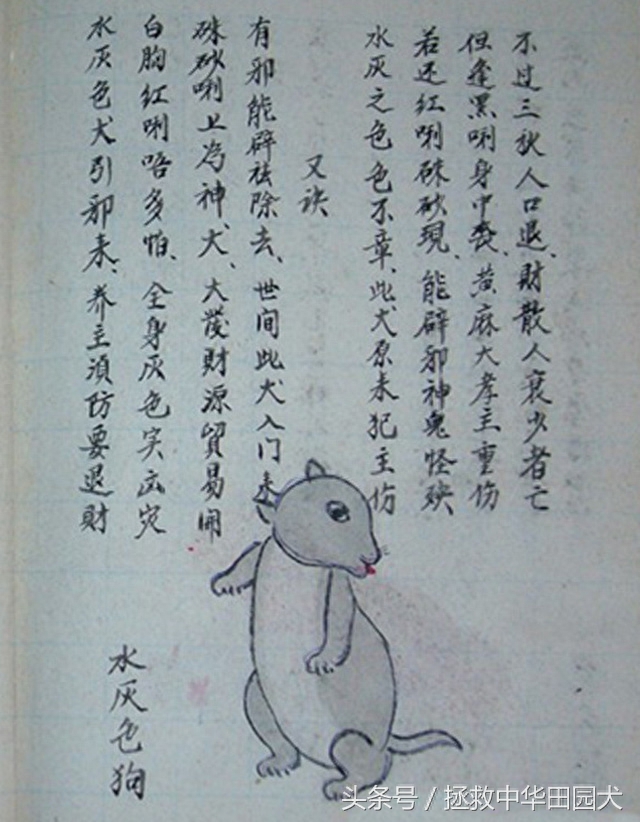 不过三秋人口退、財散人衰少者亡
但逢黑唎身中喪、黄麻大孝主重伤
若还红唎硃砂現、能辟邪神鬼怪殃
水灰之色色不章、此犬原来犯主伤
又诀
有邪能辟祛除去、世间此犬入门来
硃砂唎上為神犬、大發財源貿易開
白胸红唎唔多怕、全身灰色实出灾
水灰色犬引邪来、养主須防要退財
水灰色狗
头条号／拯救中华田园犬